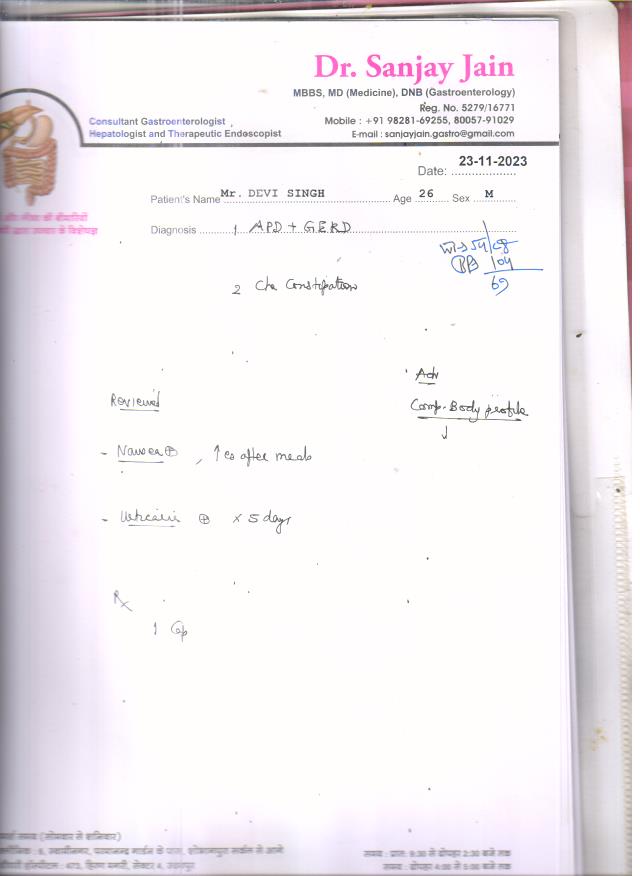 Dr. Sanjay Jain
MBBS, MD (Medicine), DNB (Gastroenterology)
Reg. No. 5279/16771
Consultant Gastroenterologist
Mobile : +91 98281-69255, 80057-91029
Hepatologist and Therapeutic Endoscopist
E-mail : sanjayjain.gastro@gmail.com
23-11-2023
Date: ...................
Patient's Name Mr. DEVI SINGH Age 26 Sex M
Diagnosis 1 APD + GERD
BP 104
69
2 Chr Constipation
Adv
Reviewed
Comp. Body profile
↓
- Nausea ⊕ , ↑es after meals
- Urticaria ⊕ x 5 days
Rx
1 Cap
समय : प्रातः 9:30 से दोपहर 2:30 बजे तक